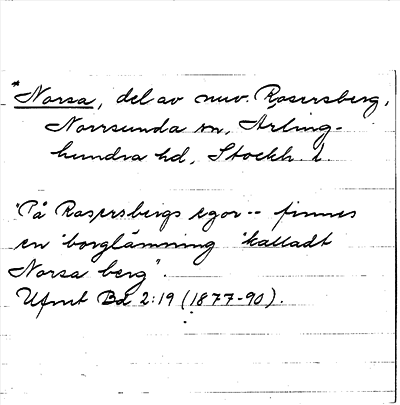 *Norsa, del av nuv. Rosersberg,
Norrsunda sn, Ärling-
hundra hd, Stockh. l.
"På Rosersbergs egor -- finnes
en borglämning kallad
Norsa berg".
Ufmt Bd 2:19 (1877-90).